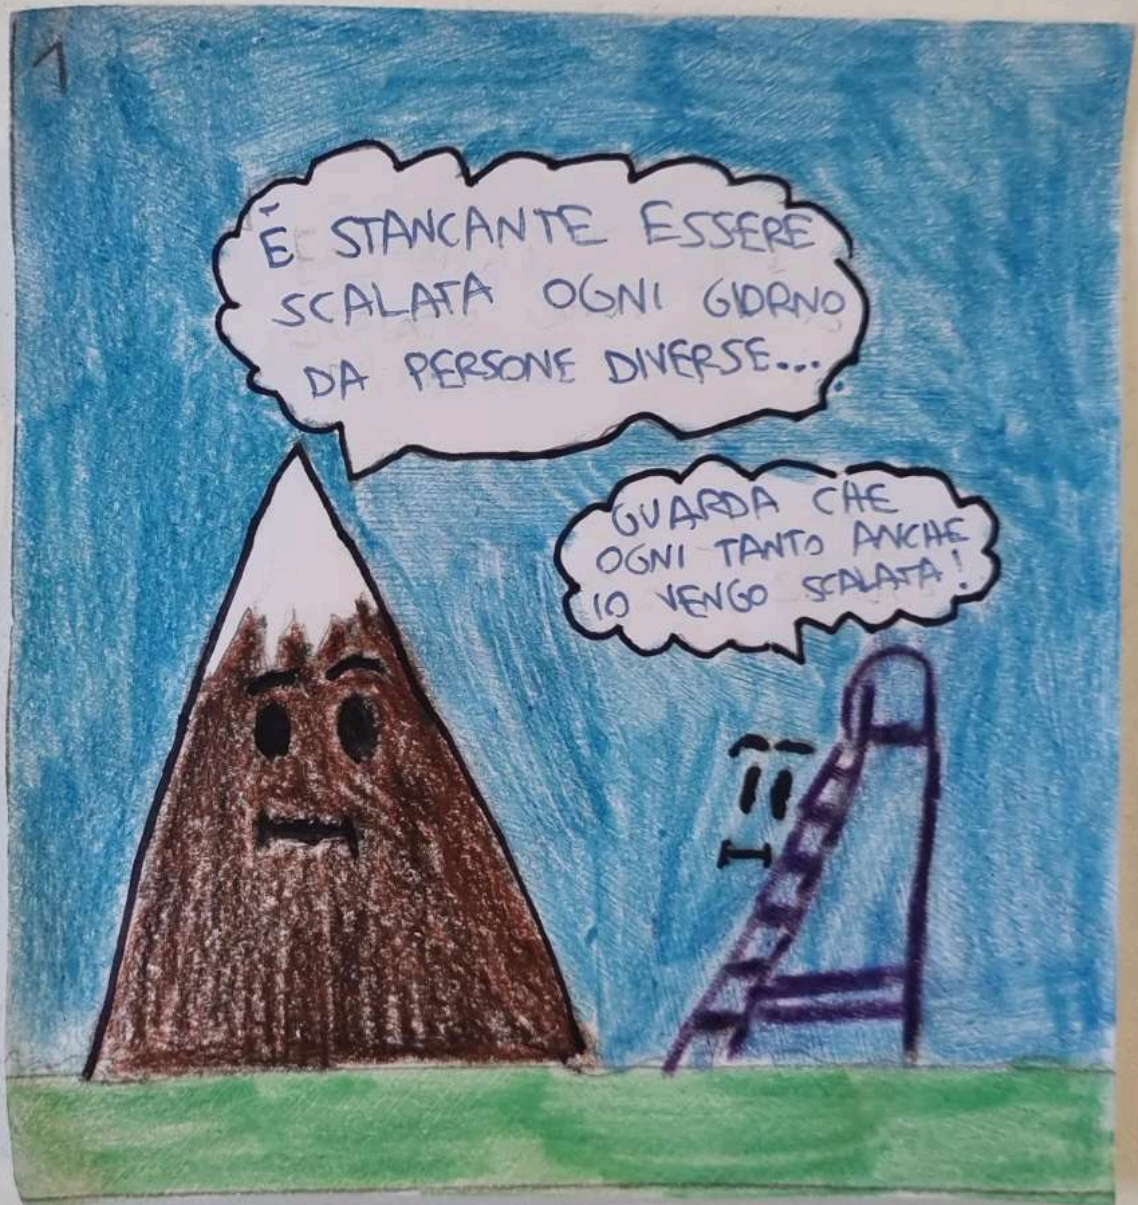 1
È STANCANTE ESSERE
SCALATA OGNI GIORNO
DA PERSONE DIVERSE...
GUARDA CHE
OGNI TANTO ANCHE
IO VENGO SCALATA!